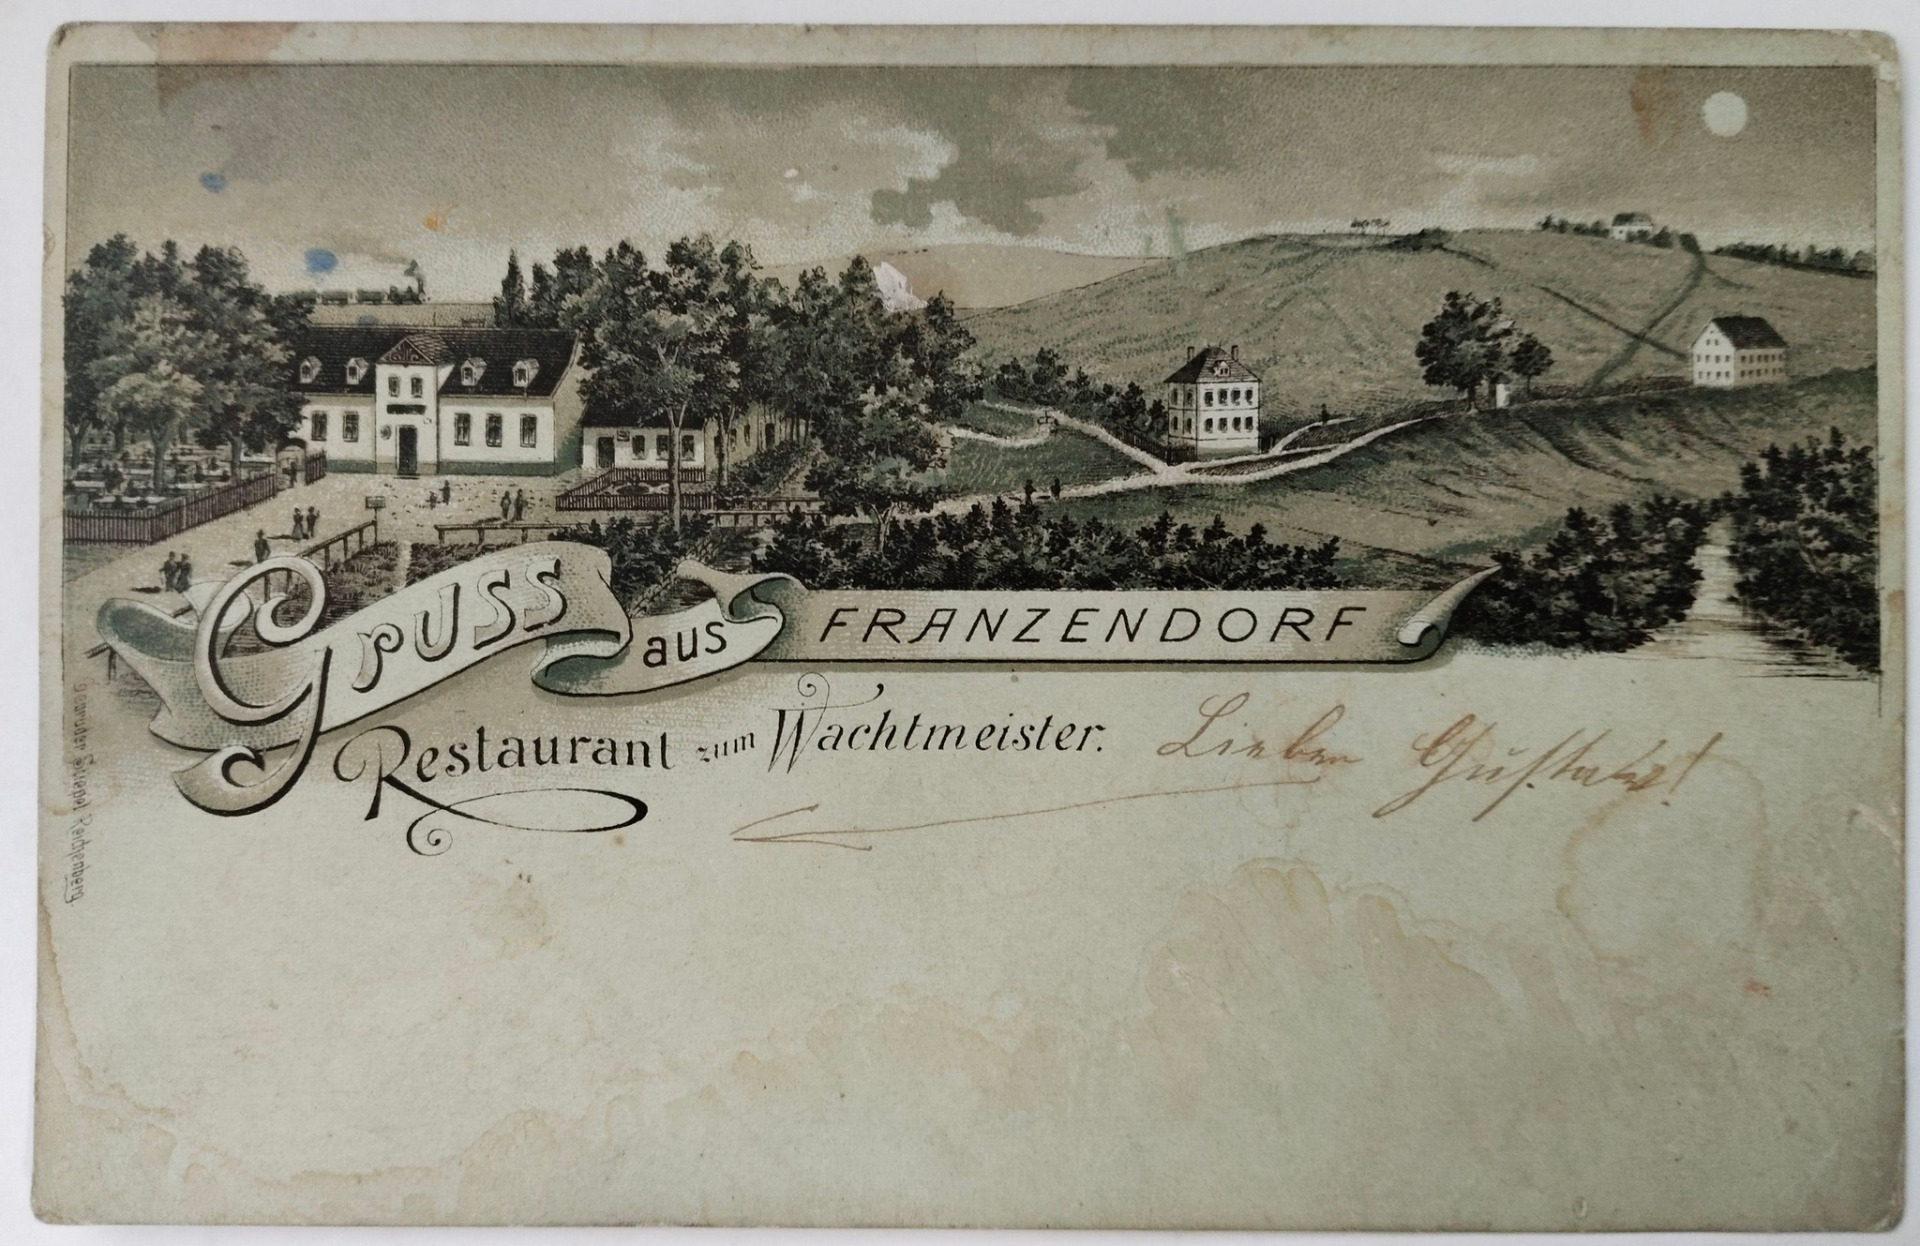 Gruss aus FRANZENDORF
Restaurant zum Wachtmeister.
Lieber Gustav!
Gebrüder Stiepel, Reichenberg.